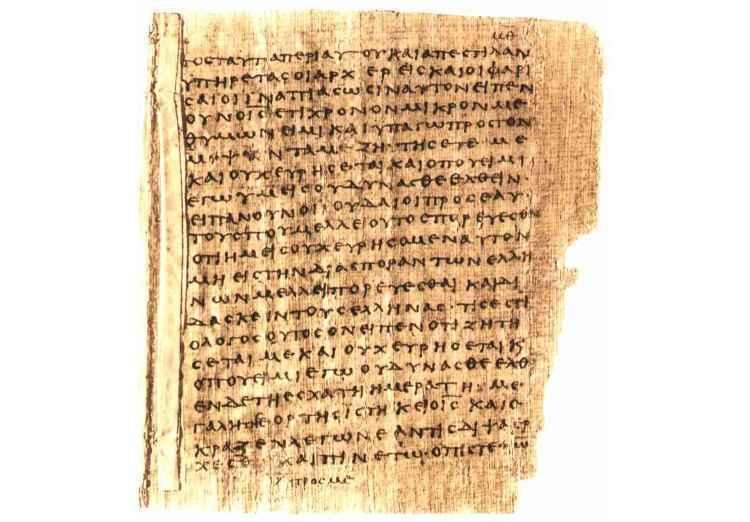 ΜΕ
ΤΟϹΤΑΥΤΑΠΕΡΙΑΥΤΟΥΚΑΙΑΠΕϹΤΙΛΑΝ
ΥΠΗΡΕΤΑϹΟΙΑΡΧ ΕΡΕΙϹΚΑΙΟΙΦΑΡΙ
ϹΑΙΟΙ ΙΝΑΠΙΑϹΩϹΙΝΑΥΤΟΝΕΙΠΕΝ
ΟΥΝΟΙ̅Ϲ̅ΕΤΙΧΡΟΝΟΝΜΙΚΡΟΝΜΕ
ΘΥΜΩΝΕΙΜΙΚΑΙΥΠΑΓΩΠΡΟϹΤΟΝ
ΜΨΑΝΤΑΜΕ·ΖΗΤΗϹΕΤΕΜΕ
ΚΑΙΟΥΧΕΥΡΗϹΕΤΑΙΚΑΙΟΠΟΥΕΙΜΙ
ΕΓΩΥΜΕΙϹΟΥΔΥΝΑϹΘΕΕΛΘΕΙΝ·
ΕΙΠΑΝΟΥΝΟΙΙΟΥΔΑΙΟΙΠΡΟϹΕΑΥ
ΤΟΥϹΠΟΥΜΕΛΛΕΙΟΥΤΟϹΠΟΡΕΥΕϹΘ
ΟΤΙΗΜΕΙϹΟΥΧΕΥΡΗϹΟΜΕΝΑΥΤΟΝ
ΜΗΕΙϹΤΗΝΔΙΑϹΠΟΡΑΝΤΩΝΕΛΛΗ
ΝΩΝΜΕΛΛΕΙΠΟΡΕΥΕϹΘΑΙΚΑΙΔΙ
ΔΑϹΚΕΙΝΤΟΥϹΕΛΛΗΝΑϹ·ΤΙϹΕϹΤΙ
ΟΛΟΓΟϹΟΥΤΟϹΟΝΕΙΠΕΝΟΤΙΖΗΤΗ
ϹΕΤΑΙΜΕΚΑΙΟΥΧΕΥΡΗϹΕΤΑΙΚ
ΟΠΟΥΕΙΜΙΕΓΩΟΥΔΥΝΑϹΘΕΕΛΘ
ΕΝΔΕΤΗΕϹΧΑΤΗΗΜΕΡΑΤΗ ΜΕ
ΓΑΛΗΤΗϹΕΟΡΤΗϹΙϹΤΗΚΕΙΟΙ̅Ϲ̅ΚΑΙΕ
ΚΡΑΖΕΝΛΕΓΩΝΕΑΝΤΙϹΔΙΨΑΕΡ
ΧΕϹΘ ΚΑΙΠΙΝΕΤΩ·ΟΠΙϹΤΕΥΩ
ΠΡΟϹΜΕ